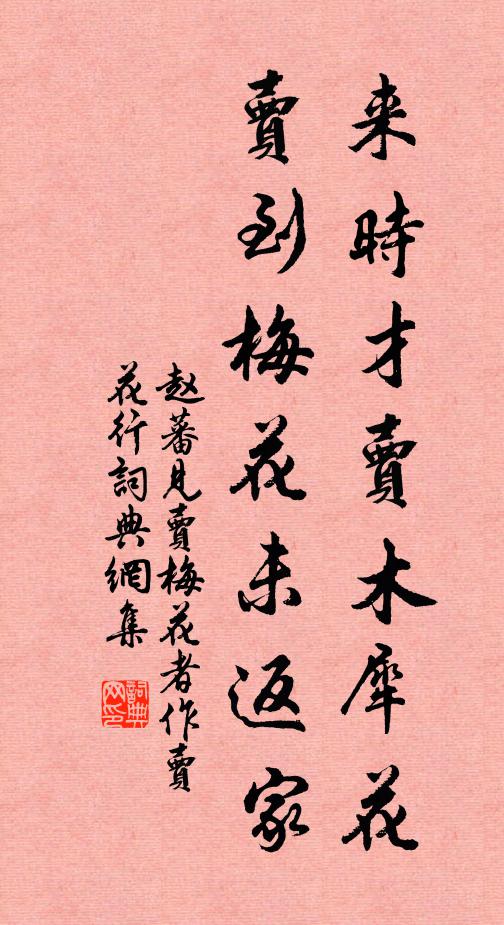 来時才賣木犀花
賣到梅花未返家
趙蕃見賣梅花者作賣
花行詞典網集
詞典
网印